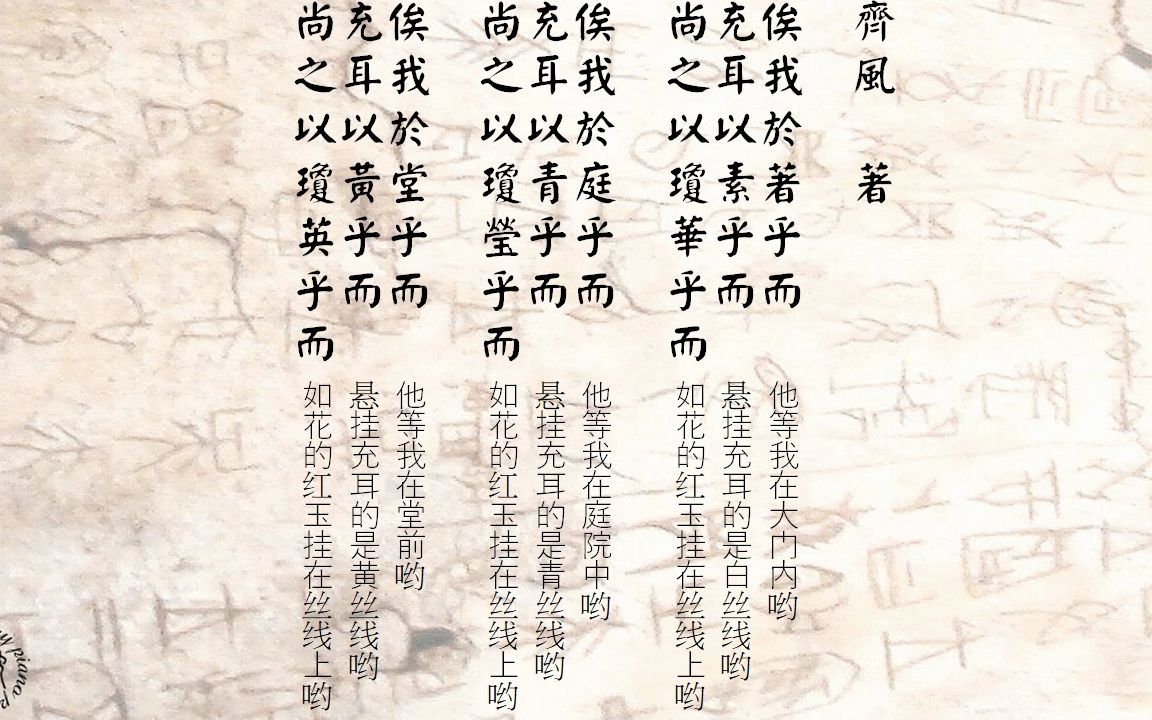 齊風 著
俟我於著乎而
充耳以素乎而
尚之以瓊華乎而
他等我在大门内哟
悬挂充耳的是白丝线哟
如花的红玉挂在丝线上哟
俟我於庭乎而
充耳以青乎而
尚之以瓊瑩乎而
他等我在庭院中哟
悬挂充耳的是青丝线哟
如花的红玉挂在丝线上哟
俟我於堂乎而
充耳以黃乎而
尚之以瓊英乎而
他等我在堂前哟
悬挂充耳的是黄丝线哟
如花的红玉挂在丝线上哟
piano